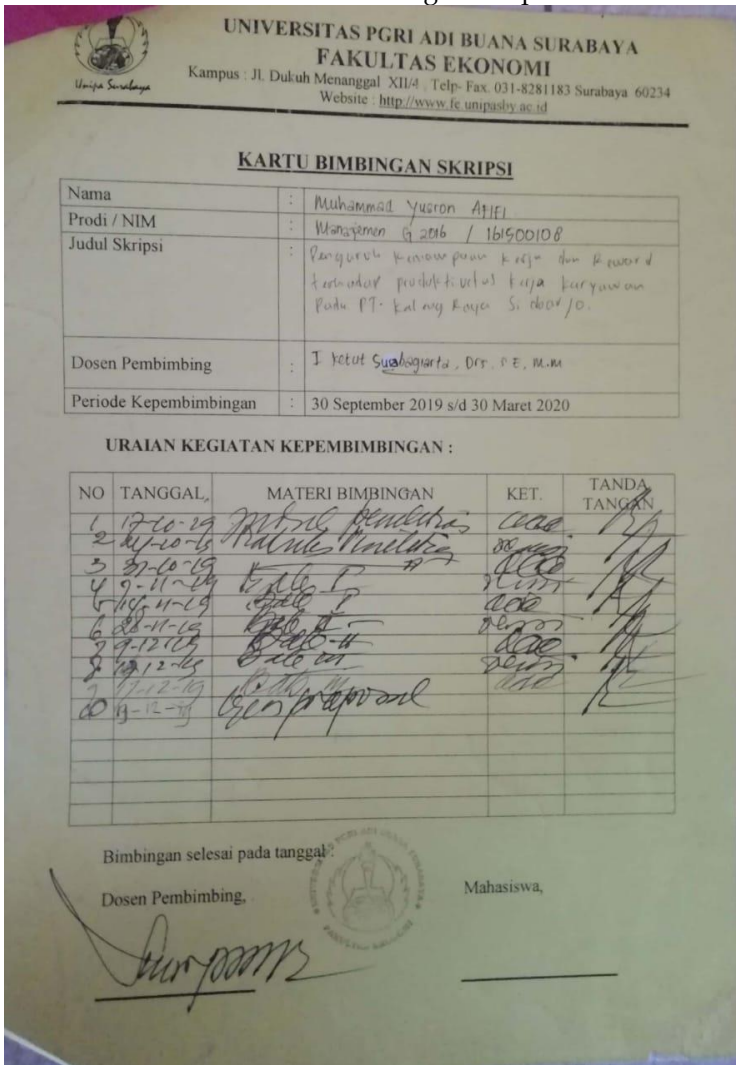 UNIVERSITAS PGRI ADI BUANA SURABAYA
FAKULTAS EKONOMI
Kampus : Jl. Dukuh Menanggal XII/4 , Telp- Fax. 031-8281183 Surabaya 60234
Website : http://www.fe.unipasby.ac.id
Unipa Surabaya
KARTU BIMBINGAN SKRIPSI
Nama : Muhammad Yusron Afifi
Prodi / NIM : Manajemen G 2016 / 161500108
Judul Skripsi : Pengaruh Kemampuan Kerja dan Reward
terhadap produktivitas kerja karyawan
Pada PT. Kalang Raya Sidoarjo.
Dosen Pembimbing : I Ketut Surabagiarta, Drs, SE, M.M
Periode Kepembimbingan : 30 September 2019 s/d 30 Maret 2020
URAIAN KEGIATAN KEPEMBIMBINGAN :
NO TANGGAL, MATERI BIMBINGAN KET. TANDA TANGAN
1 17-10-19
2 24-10-19
3 31-10-19
4 7-11-19 Bab I
5 14-11-19 Bab I
6 28-11-19 Bab II
7 9-12-19 Bab II
8 12-19 Bab III
9 17-12-19 Bab III
10 19-12-19 proposal
Bimbingan selesai pada tanggal :
Dosen Pembimbing,
Mahasiswa,